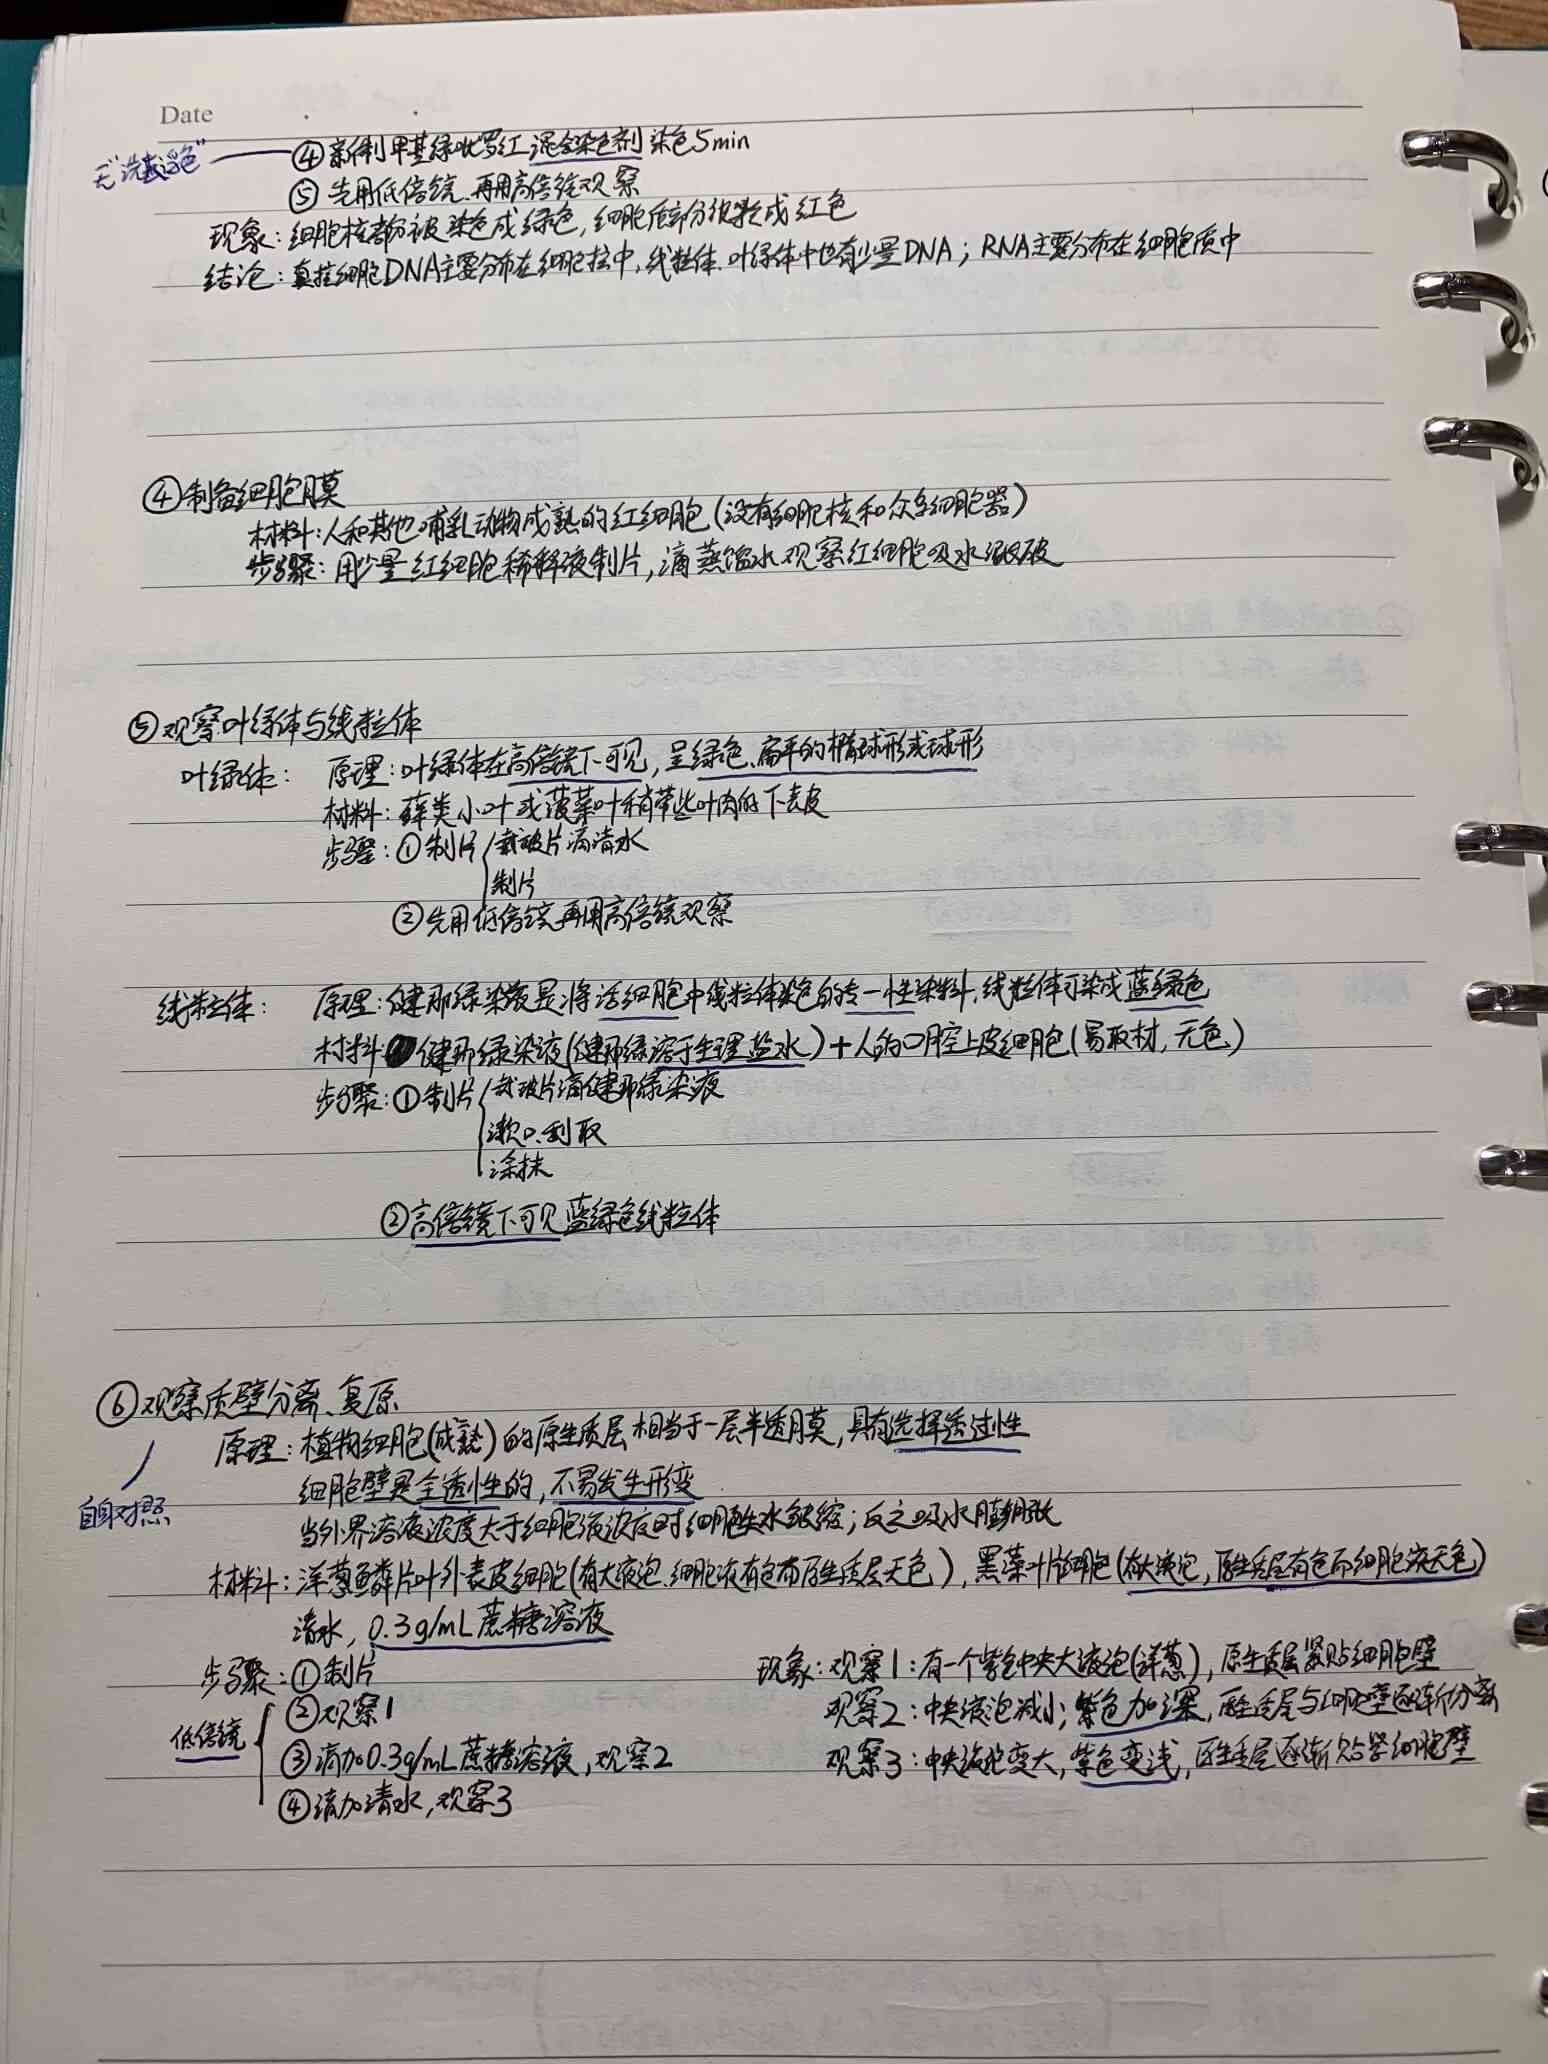 Date
无"洗去浮色"
④新制甲基绿吡罗红混合染色剂染色5min
⑤先用低倍镜、再用高倍镜观察
现象:细胞核部分被染色成绿色,细胞质部分被染成红色
结论:真核细胞DNA主要分布在细胞核中,线粒体.叶绿体中也有少量DNA;RNA主要分布在细胞质中
④制备细胞膜
材料:人和其他哺乳动物成熟的红细胞(没有细胞核和众多细胞器)
步骤:用少量红细胞稀释液制片,滴蒸馏水观察红细胞吸水涨破
⑤观察叶绿体与线粒体
叶绿体: 原理:叶绿体在高倍镜下可见,呈绿色、扁平的椭球形或球形
材料:藓类小叶或菠菜叶稍带些叶肉的下表皮
步骤:①制片{载玻片滴清水
制片
②先用低倍镜再用高倍镜观察
线粒体: 原理:健那绿染液是将活细胞中线粒体染色的专一性染料,线粒体可染成蓝绿色
材料 健那绿染液(健那绿溶于生理盐水)+人的口腔上皮细胞(易取材,无色)
步骤:①制片{载玻片滴健那绿染液
漱口.刮取
涂抹
②高倍镜下可见蓝绿色线粒体
⑥观察质壁分离、复原
自身对照
原理:植物细胞(成熟)的原生质层相当于一层半透膜,具有选择透过性
细胞壁是全透性的,不易发生形变
当外界溶液浓度大于细胞液浓度时细胞失水皱缩;反之吸水膨胀
材料:洋葱鳞片叶外表皮细胞(有大液泡.细胞液有色而原生质层无色),黑藻叶片细胞(有大液泡,原生质层有色而细胞液无色)
清水,0.3g/mL蔗糖溶液
步骤:①制片
低倍镜
②观察1
③滴加0.3g/mL蔗糖溶液,观察2
④滴加清水,观察3
现象:观察1:有一个紫色中央大液泡(洋葱),原生质层紧贴细胞壁
观察2:中央液泡减小;紫色加深,原生质层与细胞壁逐渐分离
观察3:中央液泡变大,紫色变浅,原生质层逐渐贴紧细胞壁